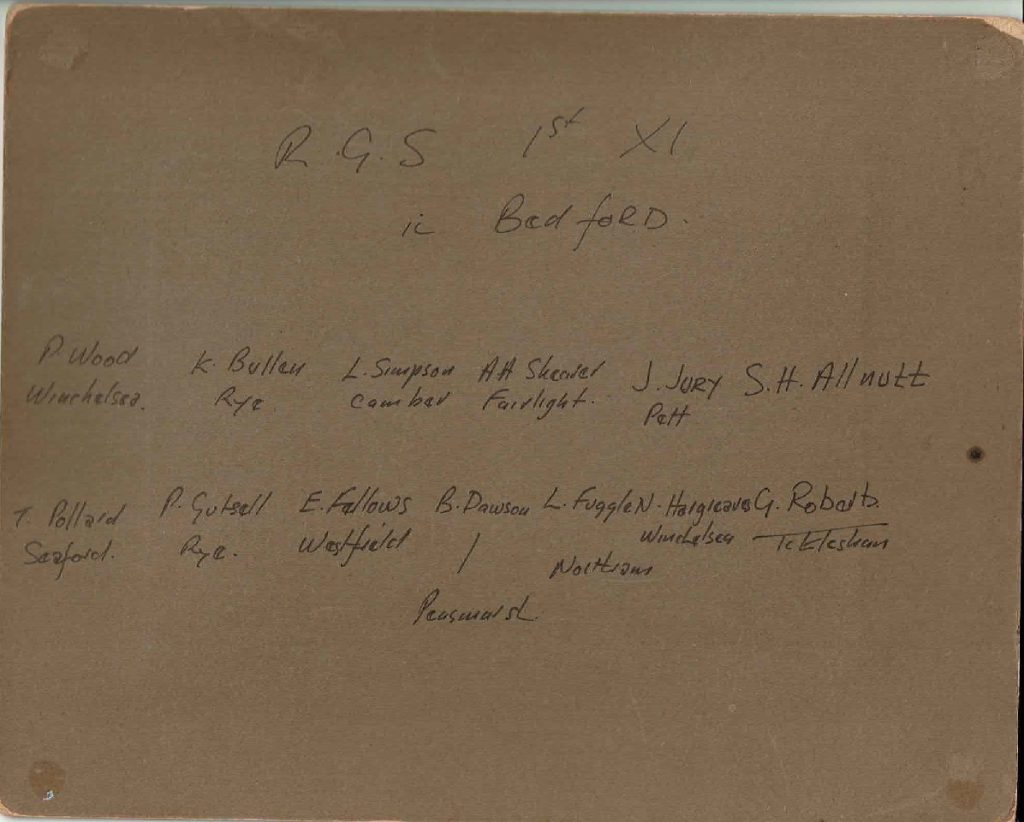 R.G.S 1st XI
ic Bedford.
P. Wood K. Bullen L. Simpson AA Shearer J. Jury S.H. Allnutt
Winchelsea. Rye Camber Fairlight. Pett
T. Pollard P. Gutsell E. Fellows B. Dawson L. Fuggle N. Hargreaves G. Roberts.
Seaford. Rye. Westfield Winchelsea Icklesham
Northiam
Peasmarsh.